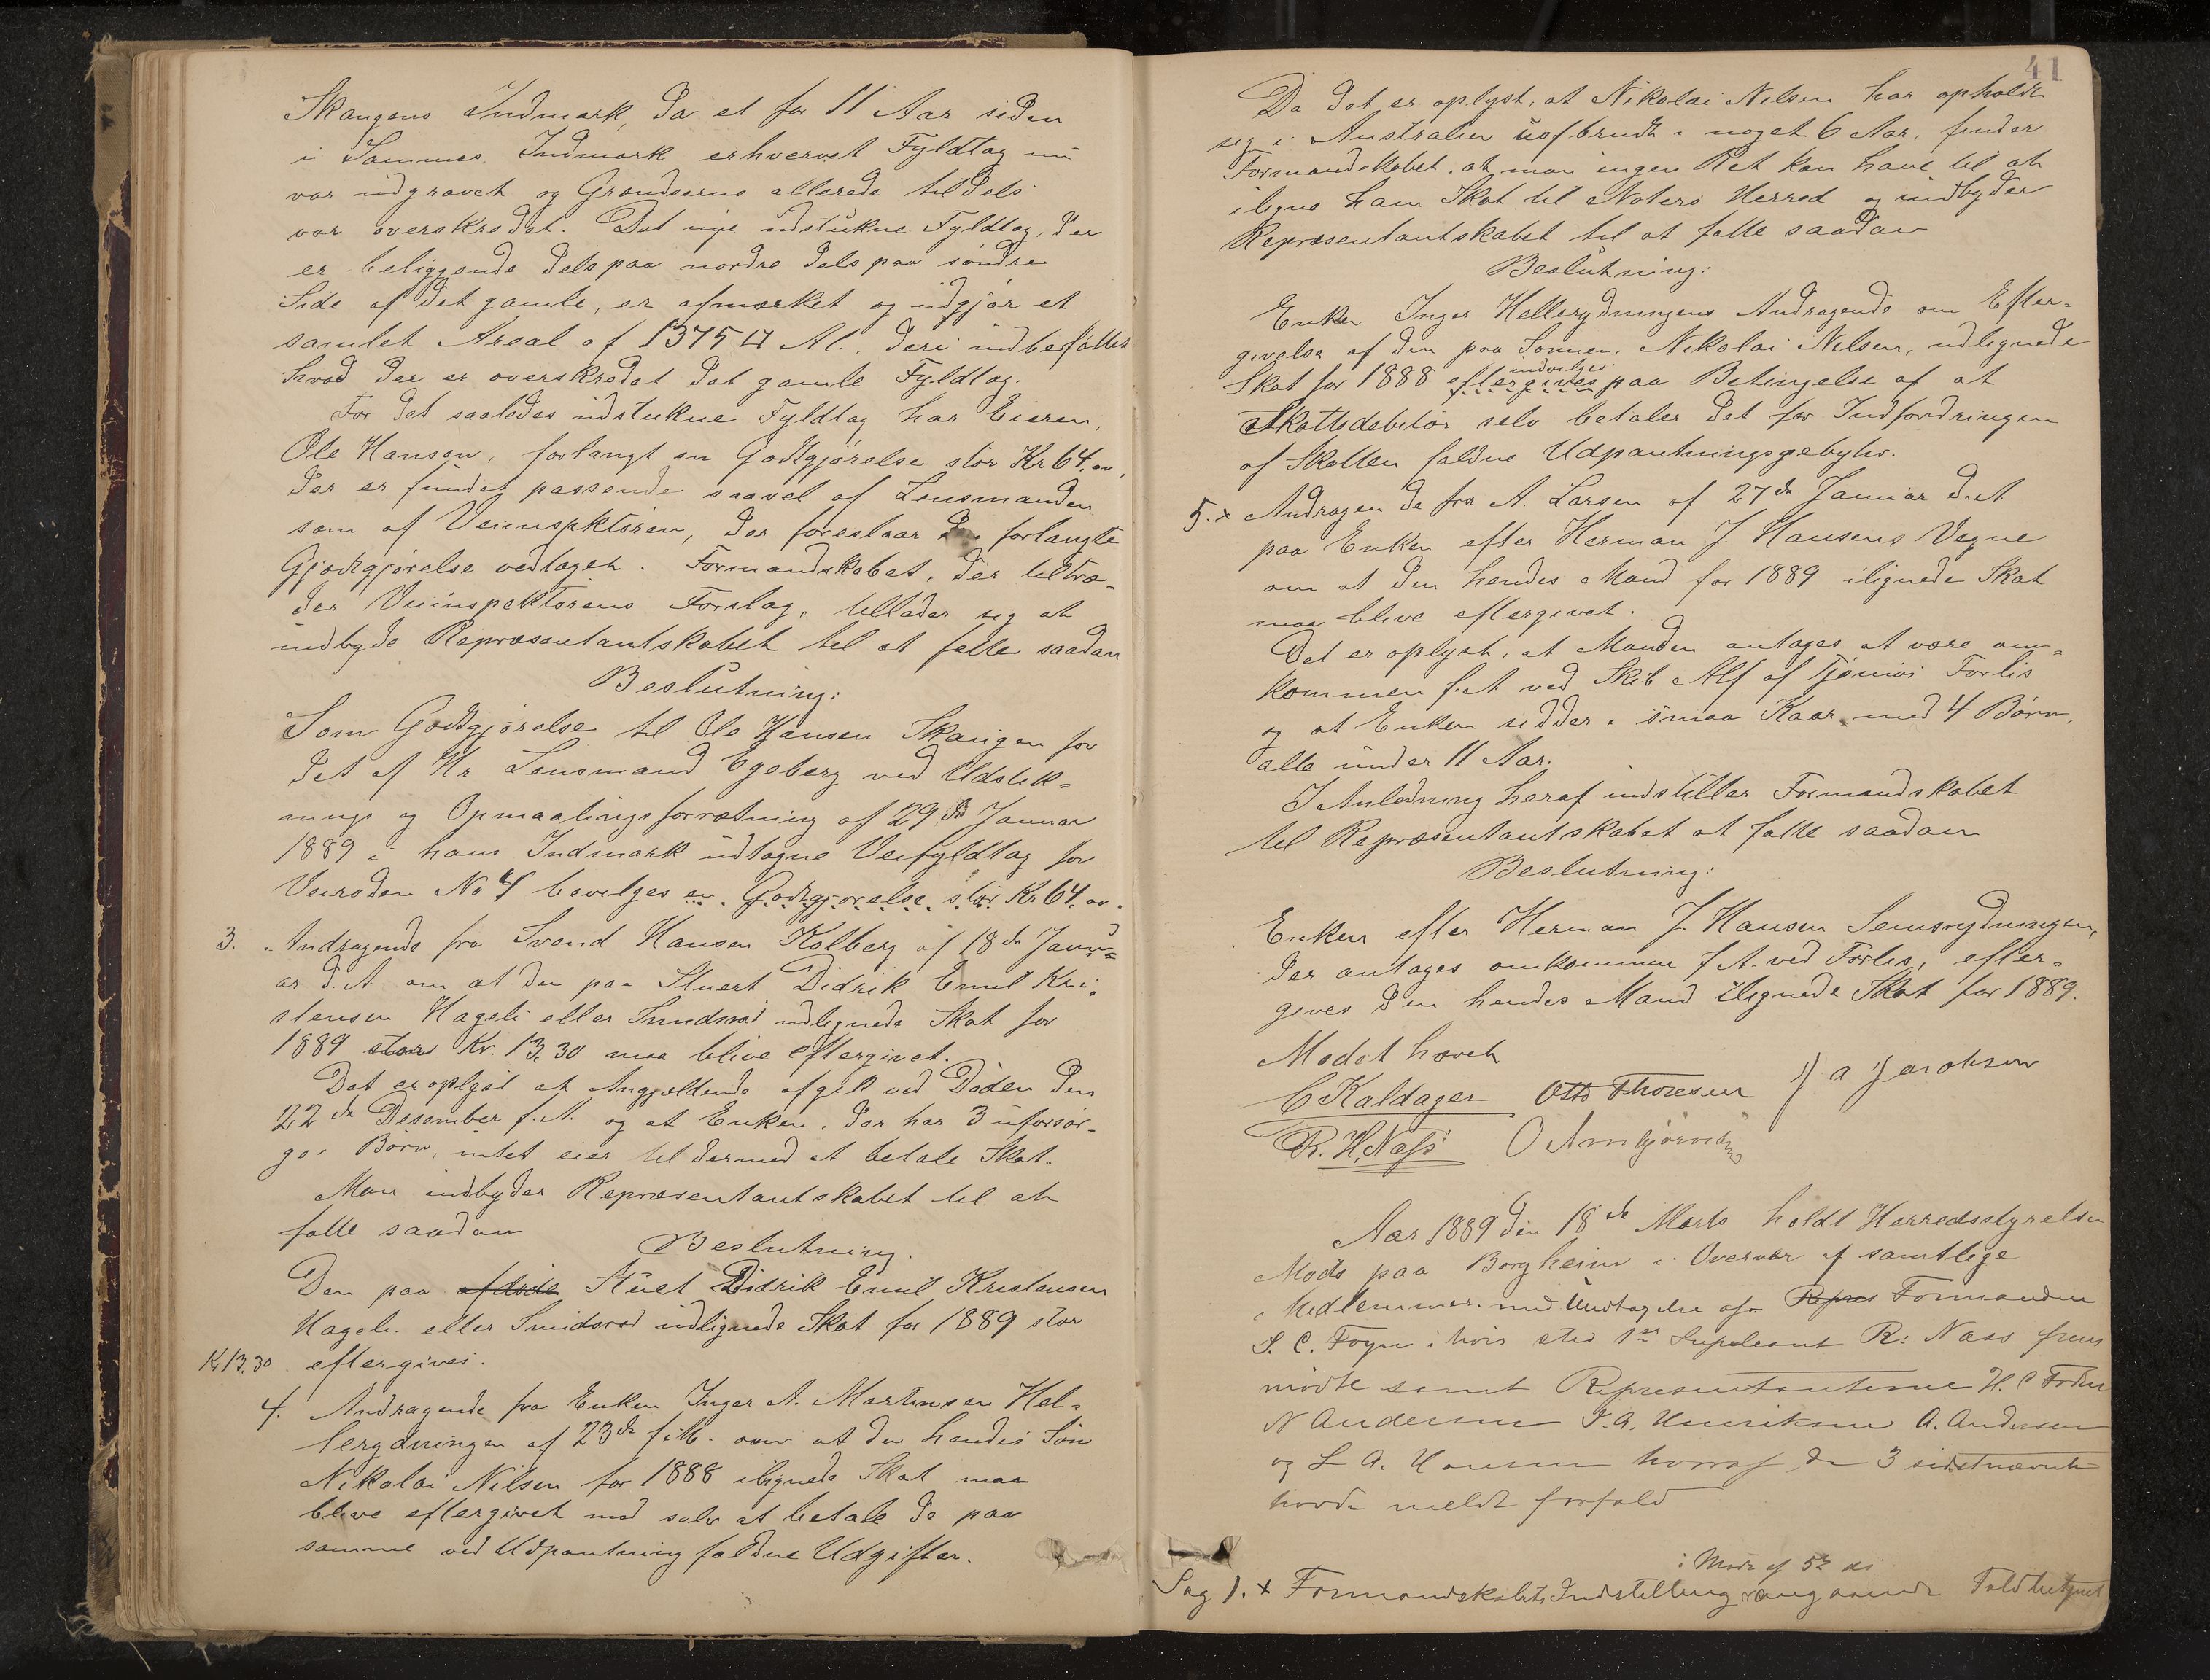 Skangens Indmark, da et for 11 Aar siden
i Sammes Indmark erhvervet Fyldtag nu
var udgravet og Grændserne allerede tildels
var overskredet. Det nye udstukne Fyldtag, der
er beliggende dels paa nordre dels paa søndre
Side af det gamle, er afmærket og udgjør et
samlet Areal af 1375 □ Al., deri indbefattet
hvad der er overskredet det gamle Fyldtag.
For det saaledes udstukne Fyldtag har Eieren,
Ole Hansen, forlangt en Godtgjørelse stor Kr 64.oo,
der er fundet passende saavel af Lensmanden
som af Veiinspektøren, der foreslaar den forlangte
Gjodtgjørelse vedtaget. Formandskabet, der tiltræ-
der Veiinspektørens Forslag, tillader sig at
indbyde Repræsentantskabet til at fatte saadan
Beslutning:
Som Godtgjørelse til Ole Hansen Skangen for
det af Hr Lensmand Egeberg ved Udstik=
nings og Opmaalingsforretning af 29de Januar
1889 i hans Indmark udtagne Veifyldtag for
Veiroden No 4 bevilges en Godtgjørelse stor Kr 64.oo.
3. Andragende fra Svend Hansen Kolberg af 18de Janu=
ar d.A. om at den paa Stuert Didrik Emil Kri-
stensen Hageli eller Smidsrød udlignede Skat for
1889 stor Kr. 13,30 maa blive eftergivet.
Det er oplyst at Angjældende afgik ved Døden den
22de Desember f.A. og at Enken, der har 3 uforsør-
gede Børn, intet eier til dermed at betale Skat.
Man indbyder Repræsentantskabet til at
fatte saadan
Beslutning.
Den paa afdøde Stuet Didrik Emil Kristensen
Hageli eller Smidsrød udlignede Skat for 1889 stor
Kr 13.30 eftergives.
4. Andragende fra Enken Inger A. Martinsen Hel-
lerydningen af 23de f.M. om at den hendes Søn
Nikolai Nilsen for 1888 ilignede Skat maa
blive eftergivet mod selv at betale de paa
samme ved Udpantning faldne Udgifter.
41
Da det er oplyst, at Nikolai Nelsen har opholdt
sig i Australien uafbrudt i noget 6 Aar, finder
Formandskabet, at man ingen Ret kan have til at
iligne ham Skat til Nøterø Herred og indbyder
Repræsentantskabet til at fatte saadan
Beslutning:
Enken Inger Hellerydningens Andragende om Efter=
givelse af den paa Sønnen, Nikolai Nilsen, udlignede
indvilges
Skat for 1888 eftergives paa Betingelse af at
Skattedebitor selv betaler det for Indfordringen
af Skatten faldne Udpantningsgebyhr.
5. x Andragende fra A. Larsen af 27de Januar d.A
paa Enken efter Herman J. Hansens Vegne
om at den hendes Mand for 1889 ilignede Skat
maa blive eftergivet.
Det er oplyst, at Manden antages at være om=
kommen f.A ved Skib Alf af Tjømøs Forlis
og at Enken sidder i smaa Kaar med 4 Børn,
alle under 11 Aar.
I Anledning heraf indstiller Formandskabet
til Repræsentantskabet at fatte saadan
Beslutning:
Enken efter Herman J. Hansen Semsrydningen,
der antages omkommen f.A. ved Forlis, efter-
gives den hendes Mand ilignede Skat for 1889.
Mødet hævet
C Kaldager Otto Thoresen J A Jacobsen
R. H. Næss
Aar 1889 den 18de Marts holdt Herredsstyrelsen
Møde paa Borgheim i Overvær af samtlige
Medlemmer med Undtagelse af Repres Formanden
S. C. Fogn i hvis sted 1ste Supleant R: Næss frem
mødte samt Representanterne H. C
N Andersen I. A. Henriksen A. Andersen
og L A. Hansen hvoraf de 3 sidstnævnte
havde meldt forfald
i Møde af 5te ds
Sag 1. x Formandskabets Indstilling angaaende